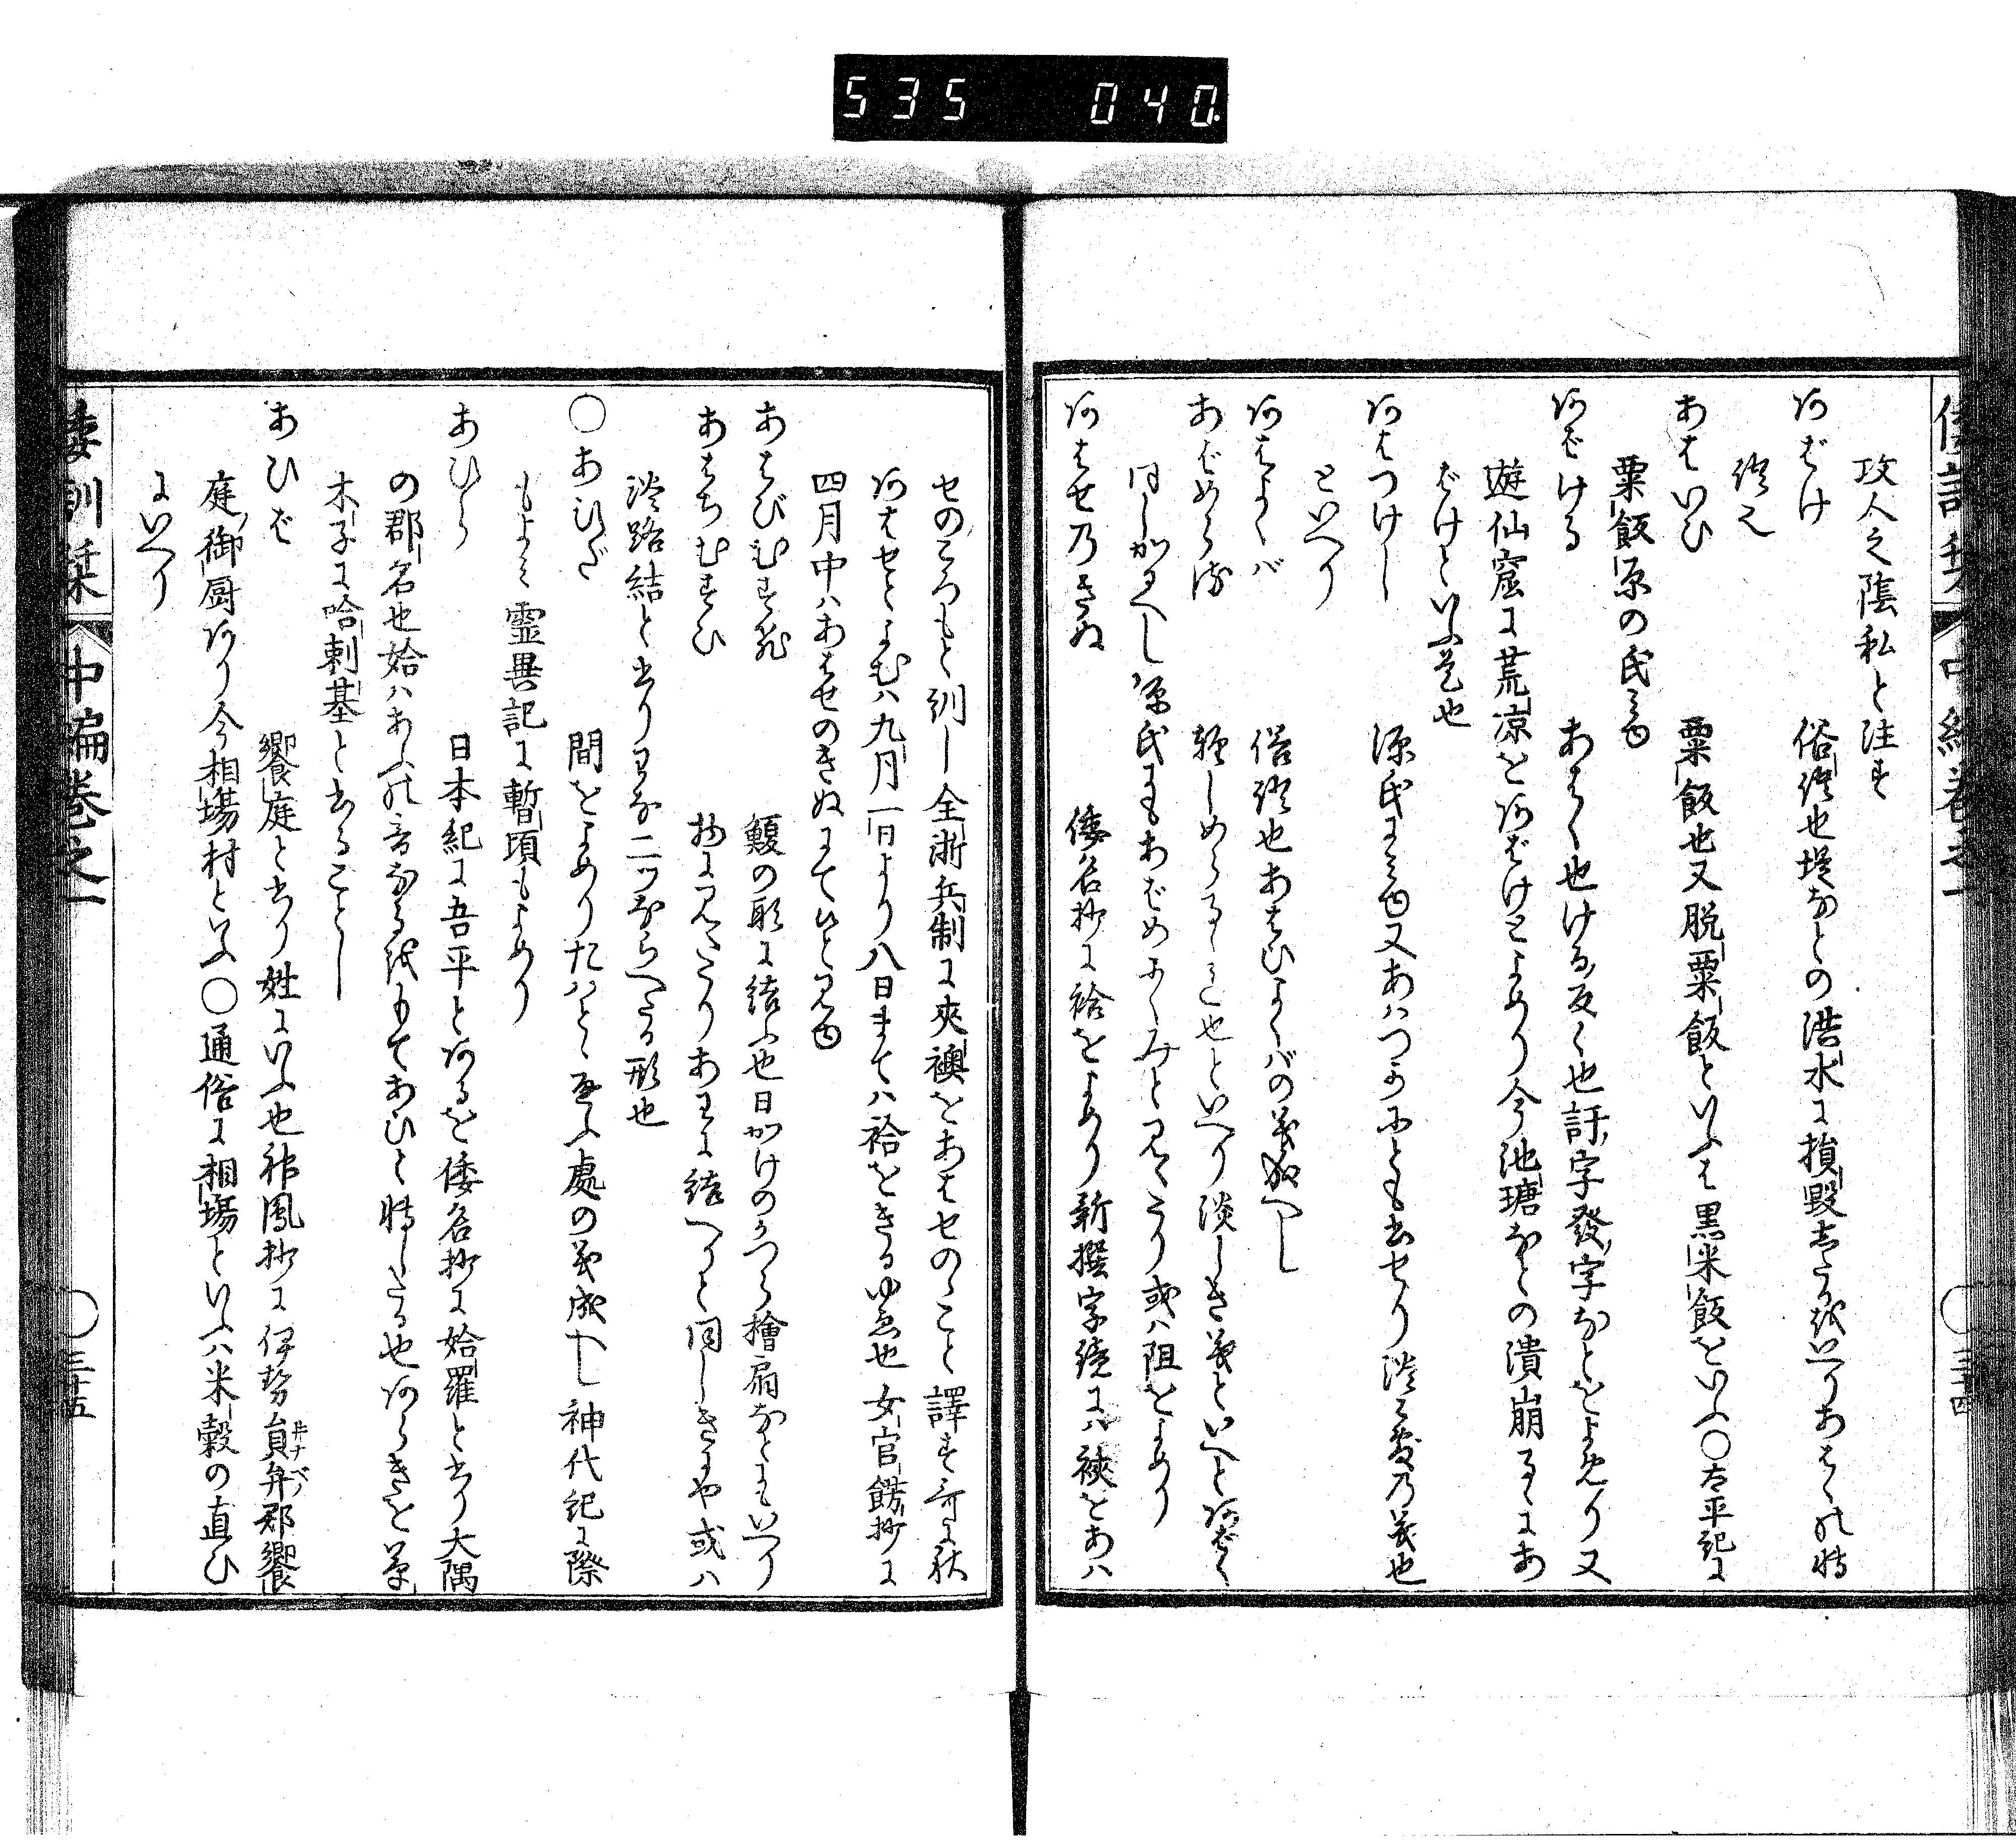 535 040.
倭訓栞 中編巻之一 三十四
攻人之陰私と注す
あばけ 俗語也堤なとの洪水に損毀したるをいへりあはくの轉
語也
あはいひ 粟飯也又脱粟飯といふは黒米飯をいふ〇太平記に
粟飯原の氏見ゆ
あばける あはく也ける反く也訐字發字なとをよめり又
遊仙窟に荒凉をあばけてよめり今池瑭なとの潰崩るゝにあ
ばけといふ是也
あはつけし 源氏に見ゆ又あはつかにとも出せり淡々敷の義也
といへり
あはよくバ 俗語也あはひよくバの義成へし
あばめらる 輕しめらるゝ也といへり淡しき義といへとあばく
同しかるへし源氏にもあばめにくみと見えたり或ハ阻をよめり
あはせのきぬ 倭名抄に袷をよめり新撰字鏡にハ裌をあハ
せのころもと訓し全浙兵制に夾襖をあはせのゝこと譯す哥に秋
あはせとよむハ九月一日より八日まてハ袷をきるゆゑ也女官餝抄に
四月中ハあはせのきぬにてひと見ゆ
あはびむすび 鰒の形に結ふ也日かけのかつら檜扇なとにもいへり
あはちむすひ 物に見えたりあわに結へると同しきにや或ハ
淡路結と書りわな二ツならへたる形也
〇あひだ 間をよめりたハとゝ通ふ處の義成へし神代紀に際
もよみ靈異記に暫頃もよめり
あひら 日本紀に吾平とあるを倭名抄に姶羅と書り大隅
の郡名也姶ハあふの音なるをもてあひと轉したる也あらきを草
木子に哈剌基と出ることし
あひば 饗庭と書り姓にいふ也神鳳抄に伊勢員弁郡饗
庭御厨あり今相塲村といふ〇通俗に相塲といふハ米穀の直ひ
にいへり
倭訓栞 中編巻之一 三十五